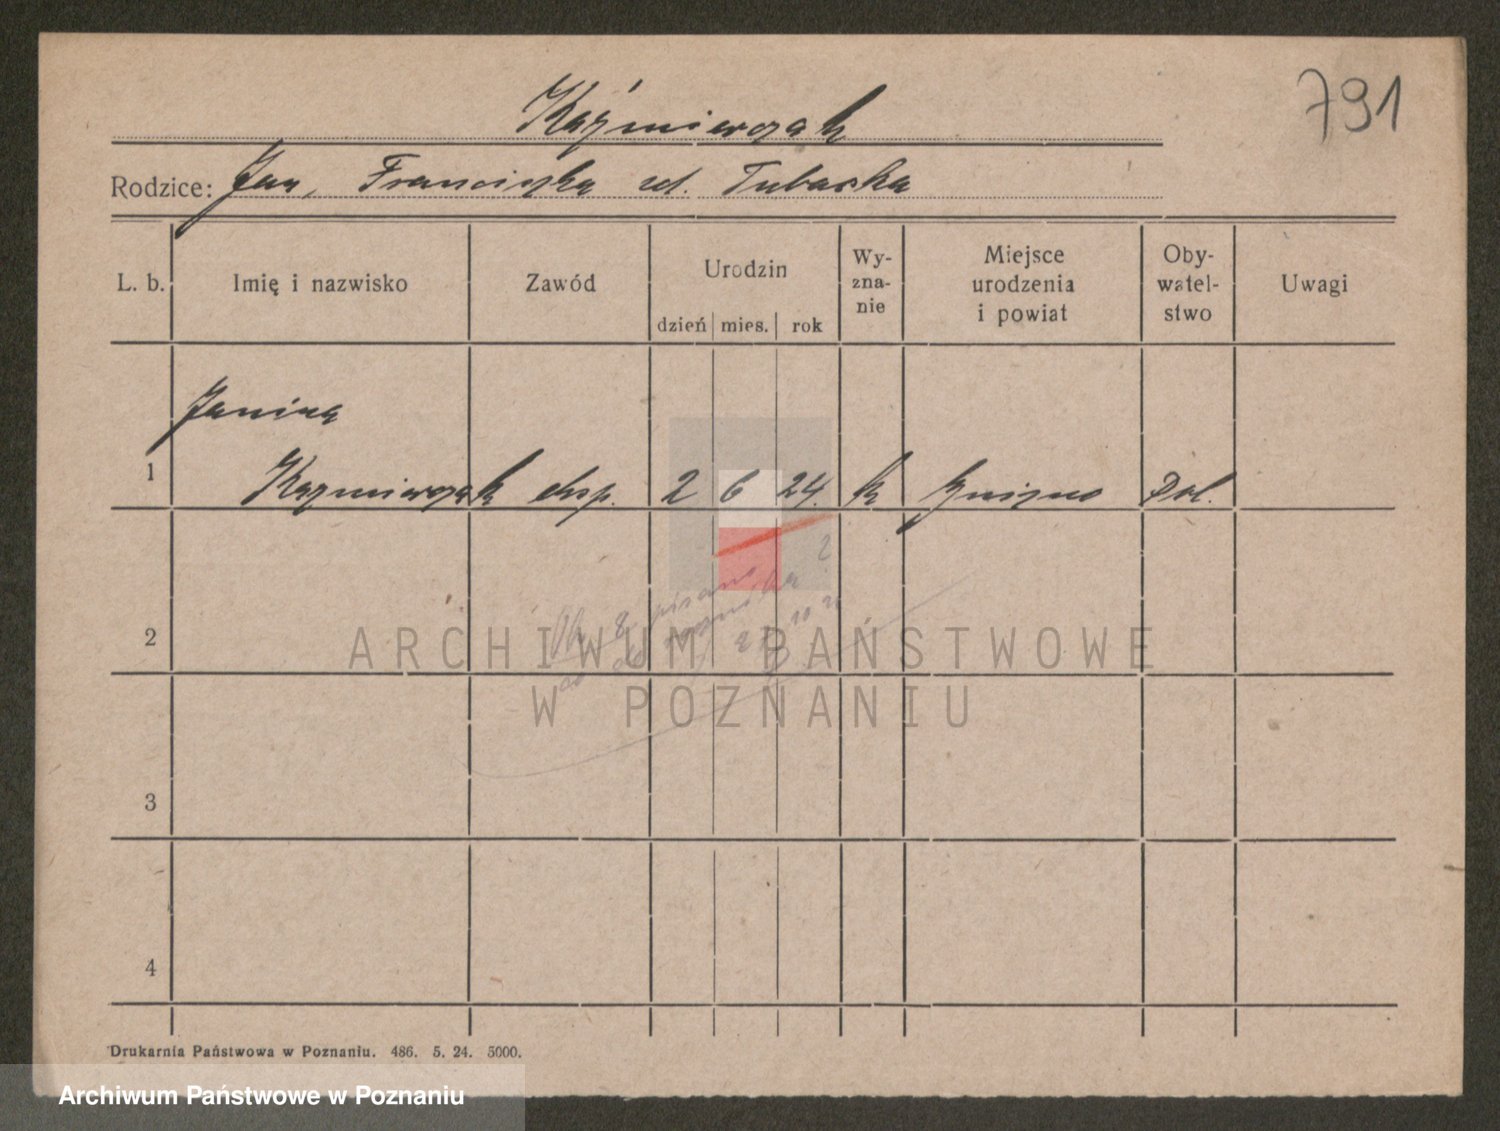 791
Kaźmierczak
Rodzice: Jan, Franciszka zd. Tubacka
L. b.
Imię i nazwisko
Zawód
Urodzin
dzień mies. rok
Wy-
zna-
nie
Miejsce
urodzenia
i powiat
Oby-
watel-
stwo
Uwagi
Janina
1 Kaźmierczak eksp. 2 6 24. k Gniezno Pol.
2
3
4
ARCHIWUM PAŃSTWOWE
W POZNANIU
Drukarnia Państwowa w Poznaniu. 486. 5. 24. 5000.
Archiwum Państwowe w Poznaniu